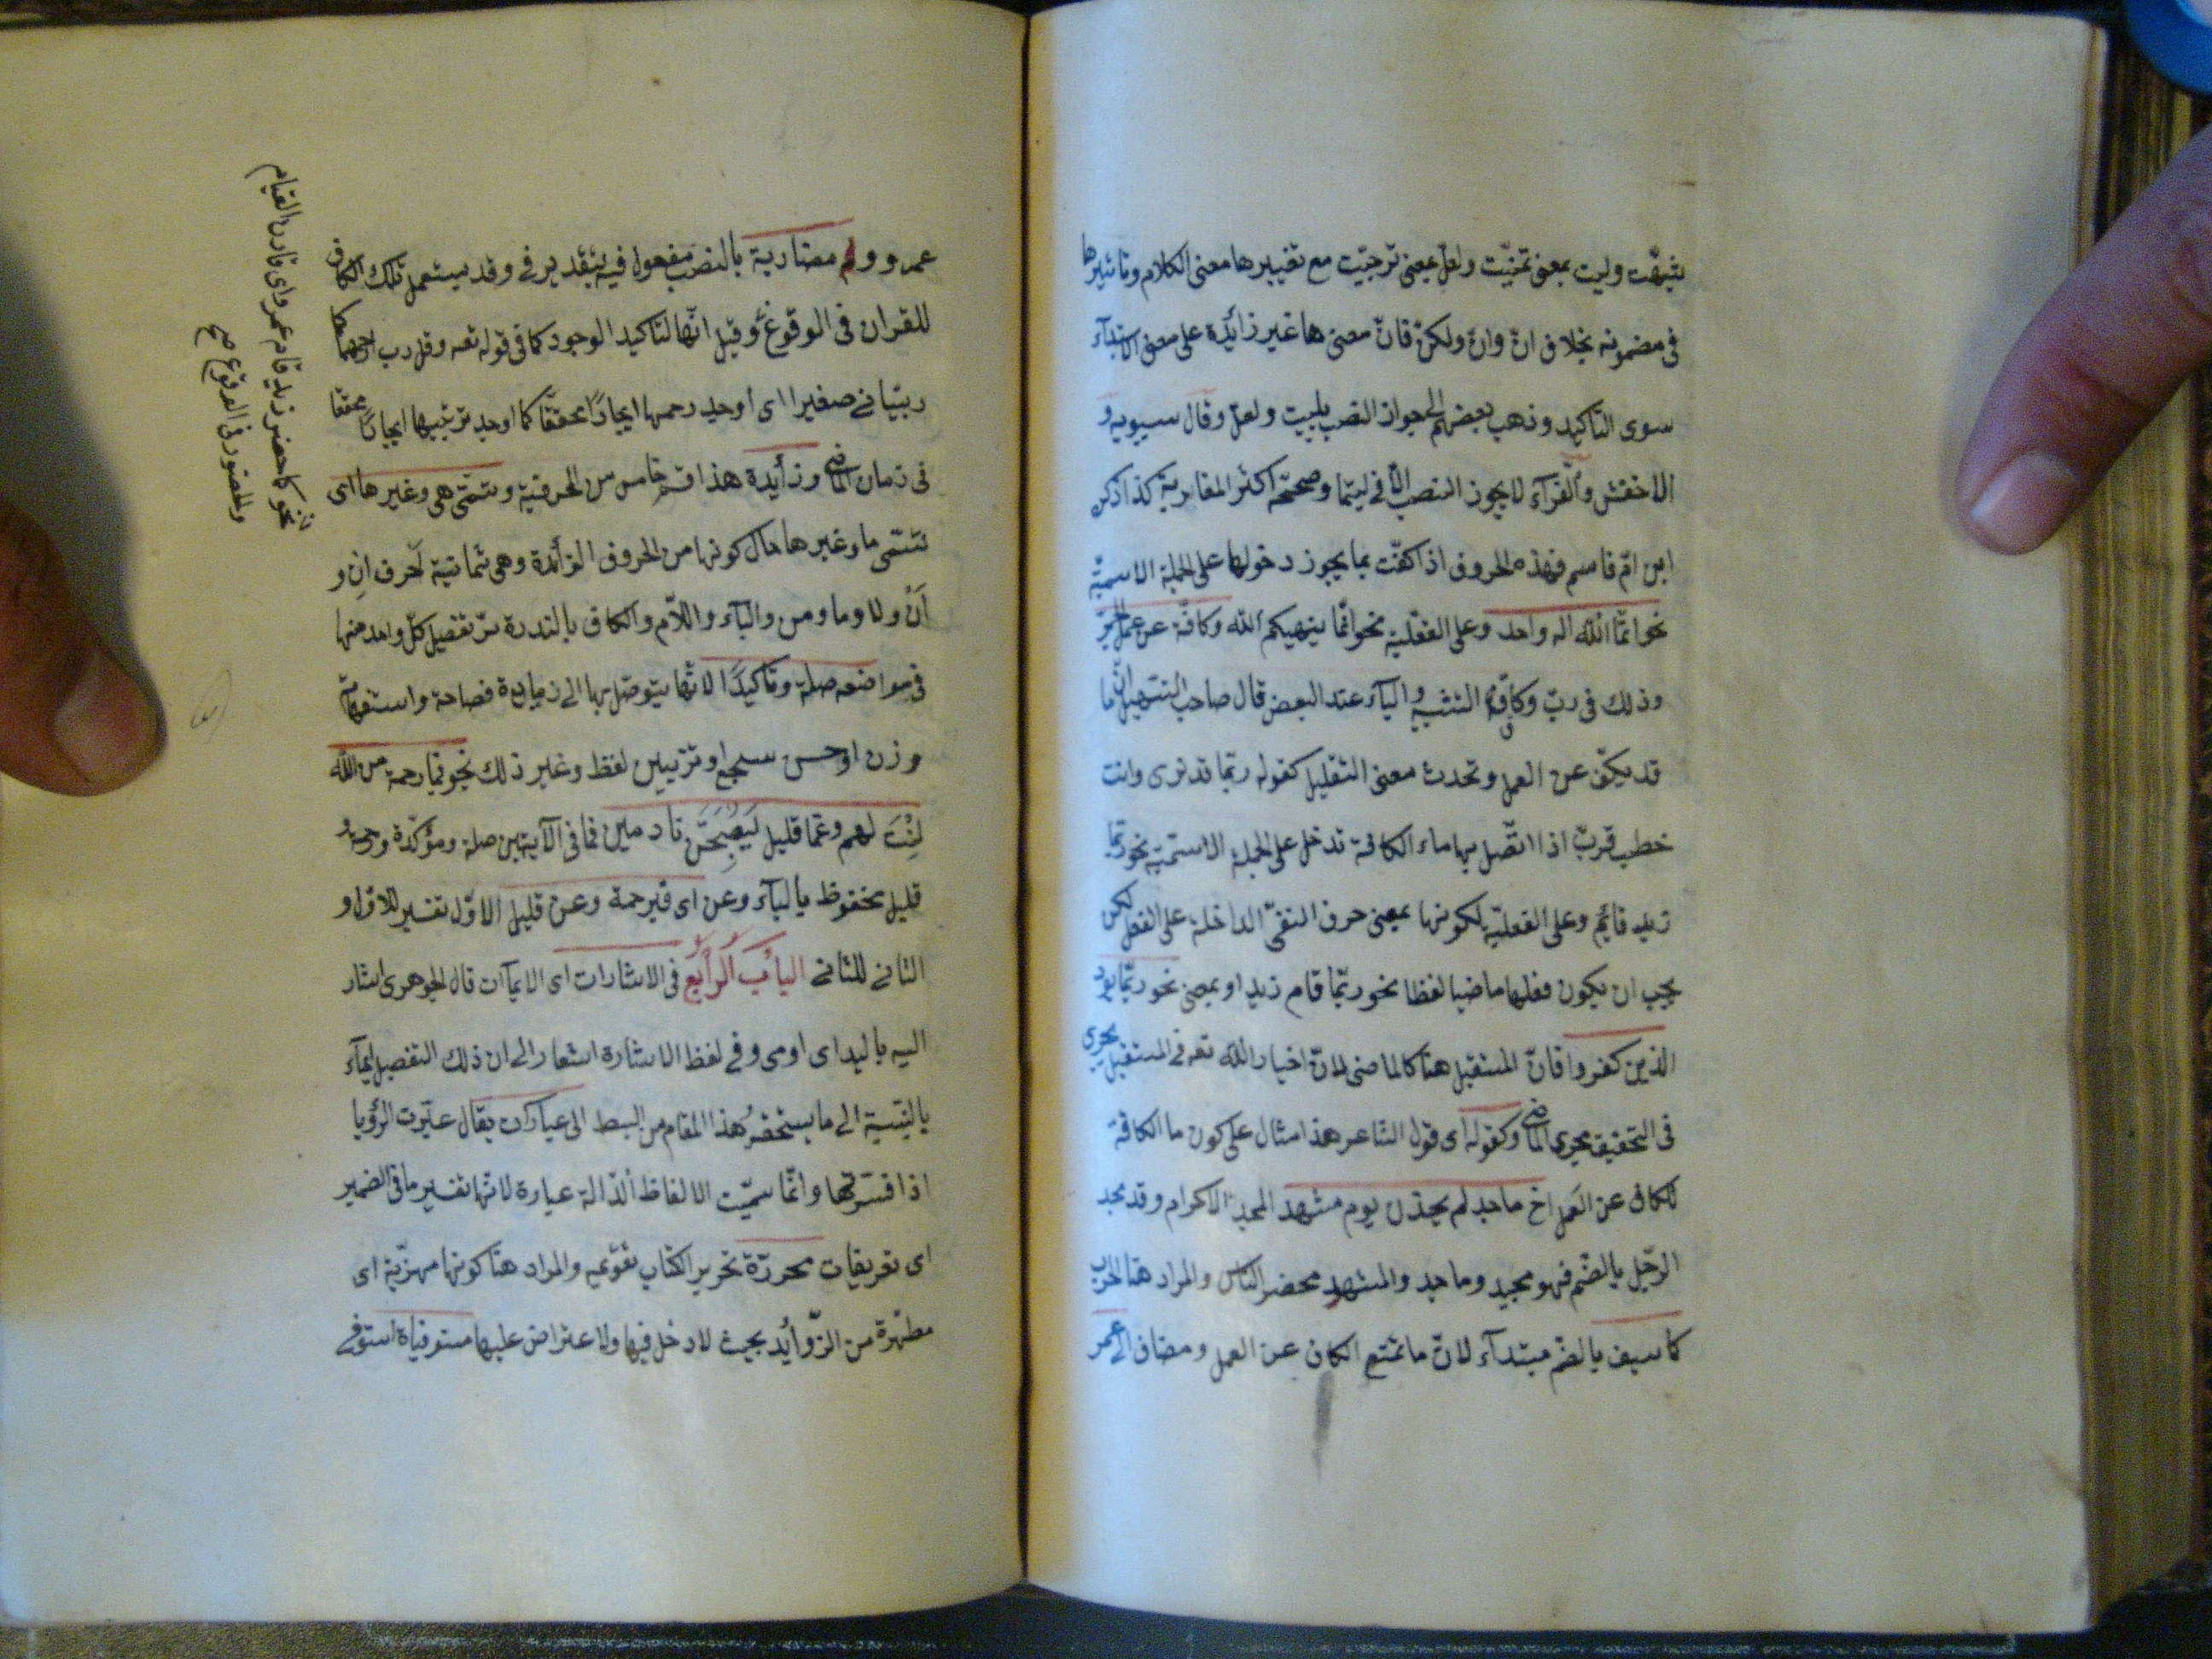 بتنبهت وليت بمعنى تمنيت ولعل بمعنى ترجيت مع تغييرها معنى الكلام وتاثيرها
فى مضمونه بخلاف انّ وانّ ولكنّ فانّ معنى ها غير زائدة على معنى الابتداء
سوى التاكيد وذهب بعضهم الى جواز النصب بليت ولعل وقال سيبويه و
الاخفش والفرّآء لا يجوز النصب الّا فى ليتما وصححه اكثر المغاربة كذا ذكر
ابن امّ قاسم فهذه الحروف اذا كفّت بما يجوز دخولها على الجملة الاسميّة
نحو انّما الله اله واحد وعلى الفعليّة نحو انّما ينهيكم الله وكافّة عن عمل الجرّ
وذلك فى ربّ وكاف التشبيه والبآء عند البعض قال صاحب التسهيل انّ ما
قد يكفّ عن العمل وتحدث معنى التقليل كقوله ربّما قد ترى وانت
خطيب فربّ اذا اتّصل بها ماء الكافة تدخل على الجملة الاسميّة نحو ربّما
زيد قائم وعلى الفعليّة لكونها بمعنى حرف النفى الداخلة على الفعل لكن
يجب ان يكون فعلها ماضيا لفظا نحو ربّما قام زيد او بمعنى نحو ربّما يود
الذين كفروا فانّ المستقبل هنا كالماضى لانّ اخبار الله تعه فى المستقبل يجرى
فى التحقيق مجرى الماضى وكقوله اى قول الشاعر هذا مثال على كون ما الكافة
للكاف عن العمل اخ ماجد لم يخذنى يوم مشهد المجد الاكرام وقد مجد
الرّجل بالضّم فهو مجيد وماجد والمشهد محضر الناس والمراد هنا الحرب
كما سيف بالضّم مبتدآء لانّ ما تمنع الكاف عن العمل ومضاف الى عمر
عمرو ولم مضاربة بالنصب مفعول فيه بتقدير فى وقد يستعمل تلك الكاف
للقران فى الوقوع وقيل انّها لتاكيد الوجود كما فى قوله تعه وقل رب ارحمهما كما
ربيانى صغيرا اى اوجد رحمهما ايجادًا محققّا كما اوجد تربيتهما ايجادًا محققا
فى زمان الماضى وزائدة هذا قسم خامس من الحرفية وتسمّى هى وغيرها اى
تسمّى ما وغيرها حال كونها من الحروف الزائدة وهى ثمانية احرف ان و
أن ولا وما ومن والبآء واللّام والكاف بالندرة مرّ تفصيل كلّ واحد منها
فى مواضعه صلة وتاكيدًا لانّها يتوصّل بها الى زيادة فصاحة واستقامة
وزن او حسن سجع او تزيين لفظ وغير ذلك نحو فبما رحمة من الله
لِنْتَ لهم وعمّا قليل لَيُصْبِحُنّ نادمين فما فى الآيتين صلة ومؤكّدة ورحمة و
قليل مخفوظ بالبآء وعن اى فبرحمة وعن قليل الاوّل تفسير للاوّل و
الثانى للثانى الباب الرابع فى الاشارات اى الايمآات قال الجوهرى اشار
اليه باليد اى اومى وفى لفظ الاشارة اشعار الى ان ذلك التفصيل ايمآء
بالنسبة الى ما يستحقه هذا المقام من البسط الى عبارات يقال عبّرت الرؤيا
اذا فسّرتها وانّما سمّيت الالفاظ الدّالة عبارة لانّها تفسير ما فى الضمير
اى تعريفات محررّة تحرير الكتاب تقويمه والمراد هنا كونها مهذّبة اى
مطهّرة من الزّوائد بحيث لا دخل فيها ولا عتراض عليها مستوفياة استوفى
نحو كما حضر زيد قام عمرو اى قارن القيام
والحضور فى الوقوع صح